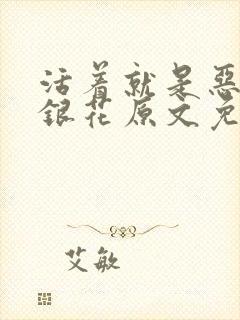 活着就是恶
銀花原文免
艾敏